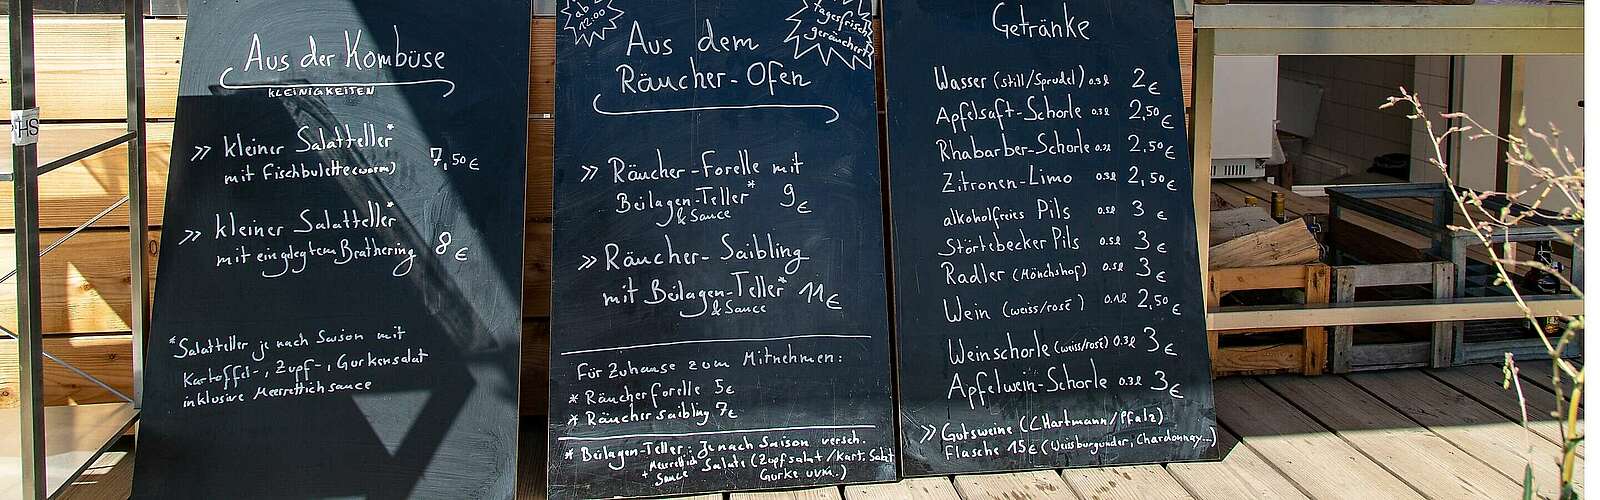 HS
Aus der Kombüse
KLEINIGKEITEN
>> kleiner Salatteller*
mit Fischbulette (warm) 7,50€
>> kleiner Salatteller*
mit eingelegtem Brathering 8€
*Salatteller je nach Saison mit
Kartoffel-, Zupf-, Gurkensalat
inklusive Meerrettichsauce
ab
12:00
tagesfrisch
geräuchert
Aus dem
Räucher-Ofen
>> Räucher-Forelle mit
Beilagen-Teller* 9€
& Sauce
>> Räucher-Saibling
mit Beilagen-Teller* 11€
& Sauce
Für Zuhause zum Mitnehmen:
* Räucherforelle 5€
* Räuchersaibling 7€
* Beilagen-Teller: Je nach Saison versch.
+ Meerrettich Salate (Zupfsalat/Kart.Salat
Sauce Gurke uvm.)
Getränke
Wasser (still/Sprudel) 0.3l 2€
Apfelsaft-Schorle 0.3l 2,50€
Rhabarber-Schorle 0.3l 2,50€
Zitronen-Limo 0.3l 2,50€
alkoholfreies Pils 0.5l 3€
Störtebecker Pils 0.5l 3€
Radler (Mönchshof) 0.5l 3€
Wein (weiss/rosé) 0.1l 2,50€
Weinschorle (weiss/rosé) 0.3l 3€
Apfelwein-Schorle 0.3l 3€
>> Gutsweine (C. Hartmann/Pfalz)
Flasche 15€ (Weissburgunder, Chardonnay...)